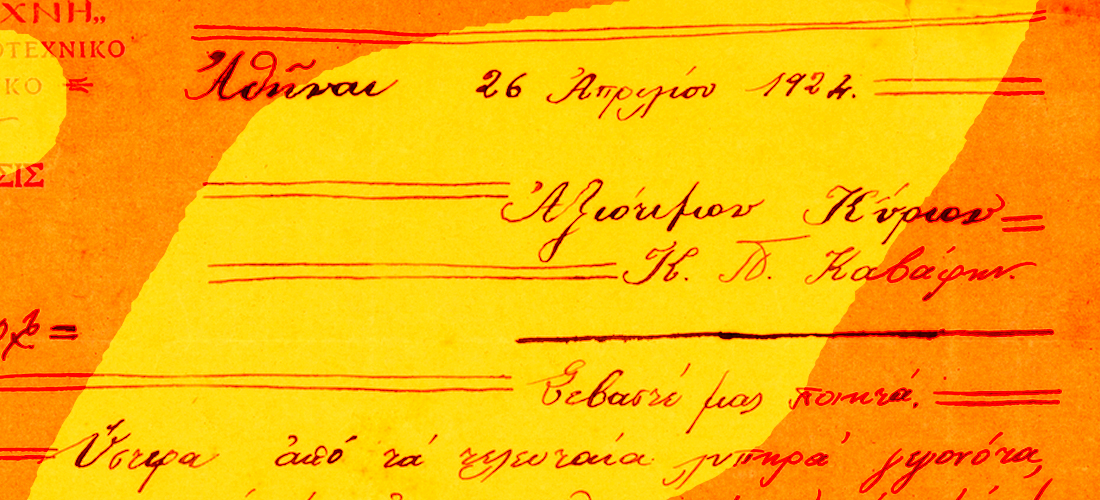 ΧΝΗ„
ΟΤΕΧΝΙΚΟ
ΚΟ
ΣΙΣ
Ἀθῆναι 26 Ἀπριλίου 1924.
Ἀξιότιμον Κύριον
Κ. Π. Καβάφην.
Σεβαστέ μας ποιητά.
Ὕστερα ἀπό τά τελευταία λυπηρά γεγονότα,